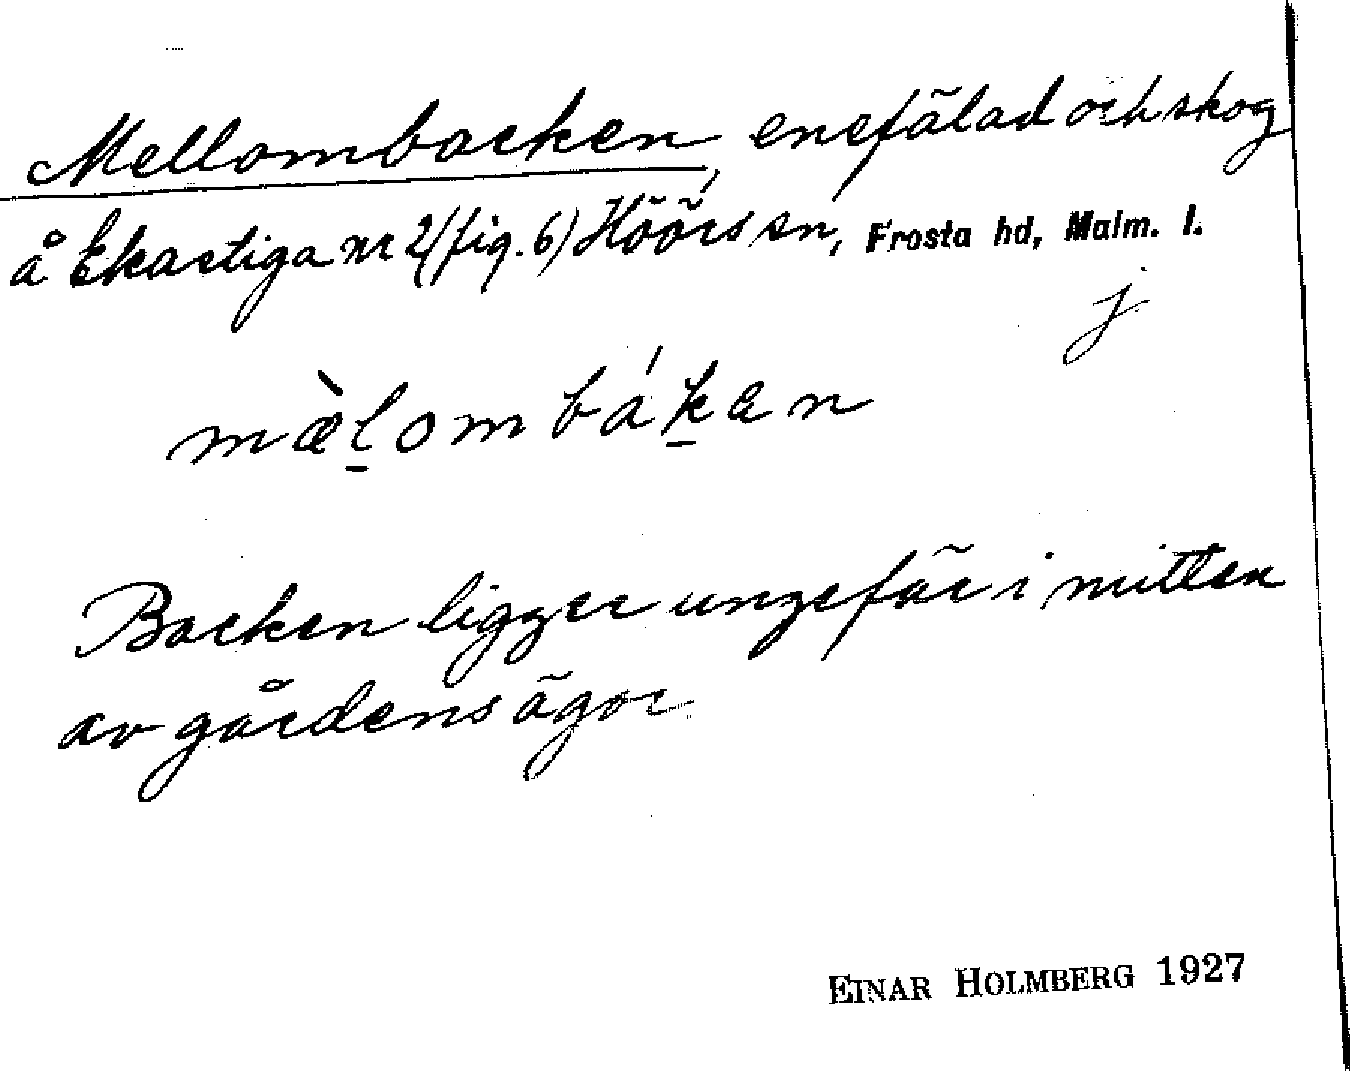 Mellombacken, enefälad och skog
å Ekastiga nr 2 (fig. 6) Höörs sn, Frosta hd, Malm. l.
j
mæ̀l̠ombák̠an
Backen ligger ungefär i mitten
av gårdens ägor
EINAR HOLMBERG 1927